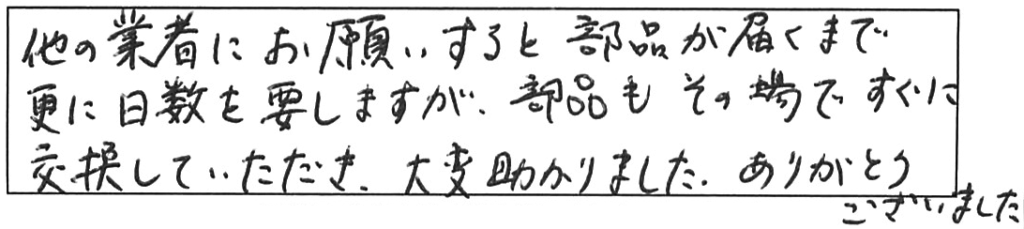 他の業者にお願いすると部品が届くまで
更に日数を要しますが、部品もその場ですぐに
交換していただき、大変助かりました。ありがとう
ございました